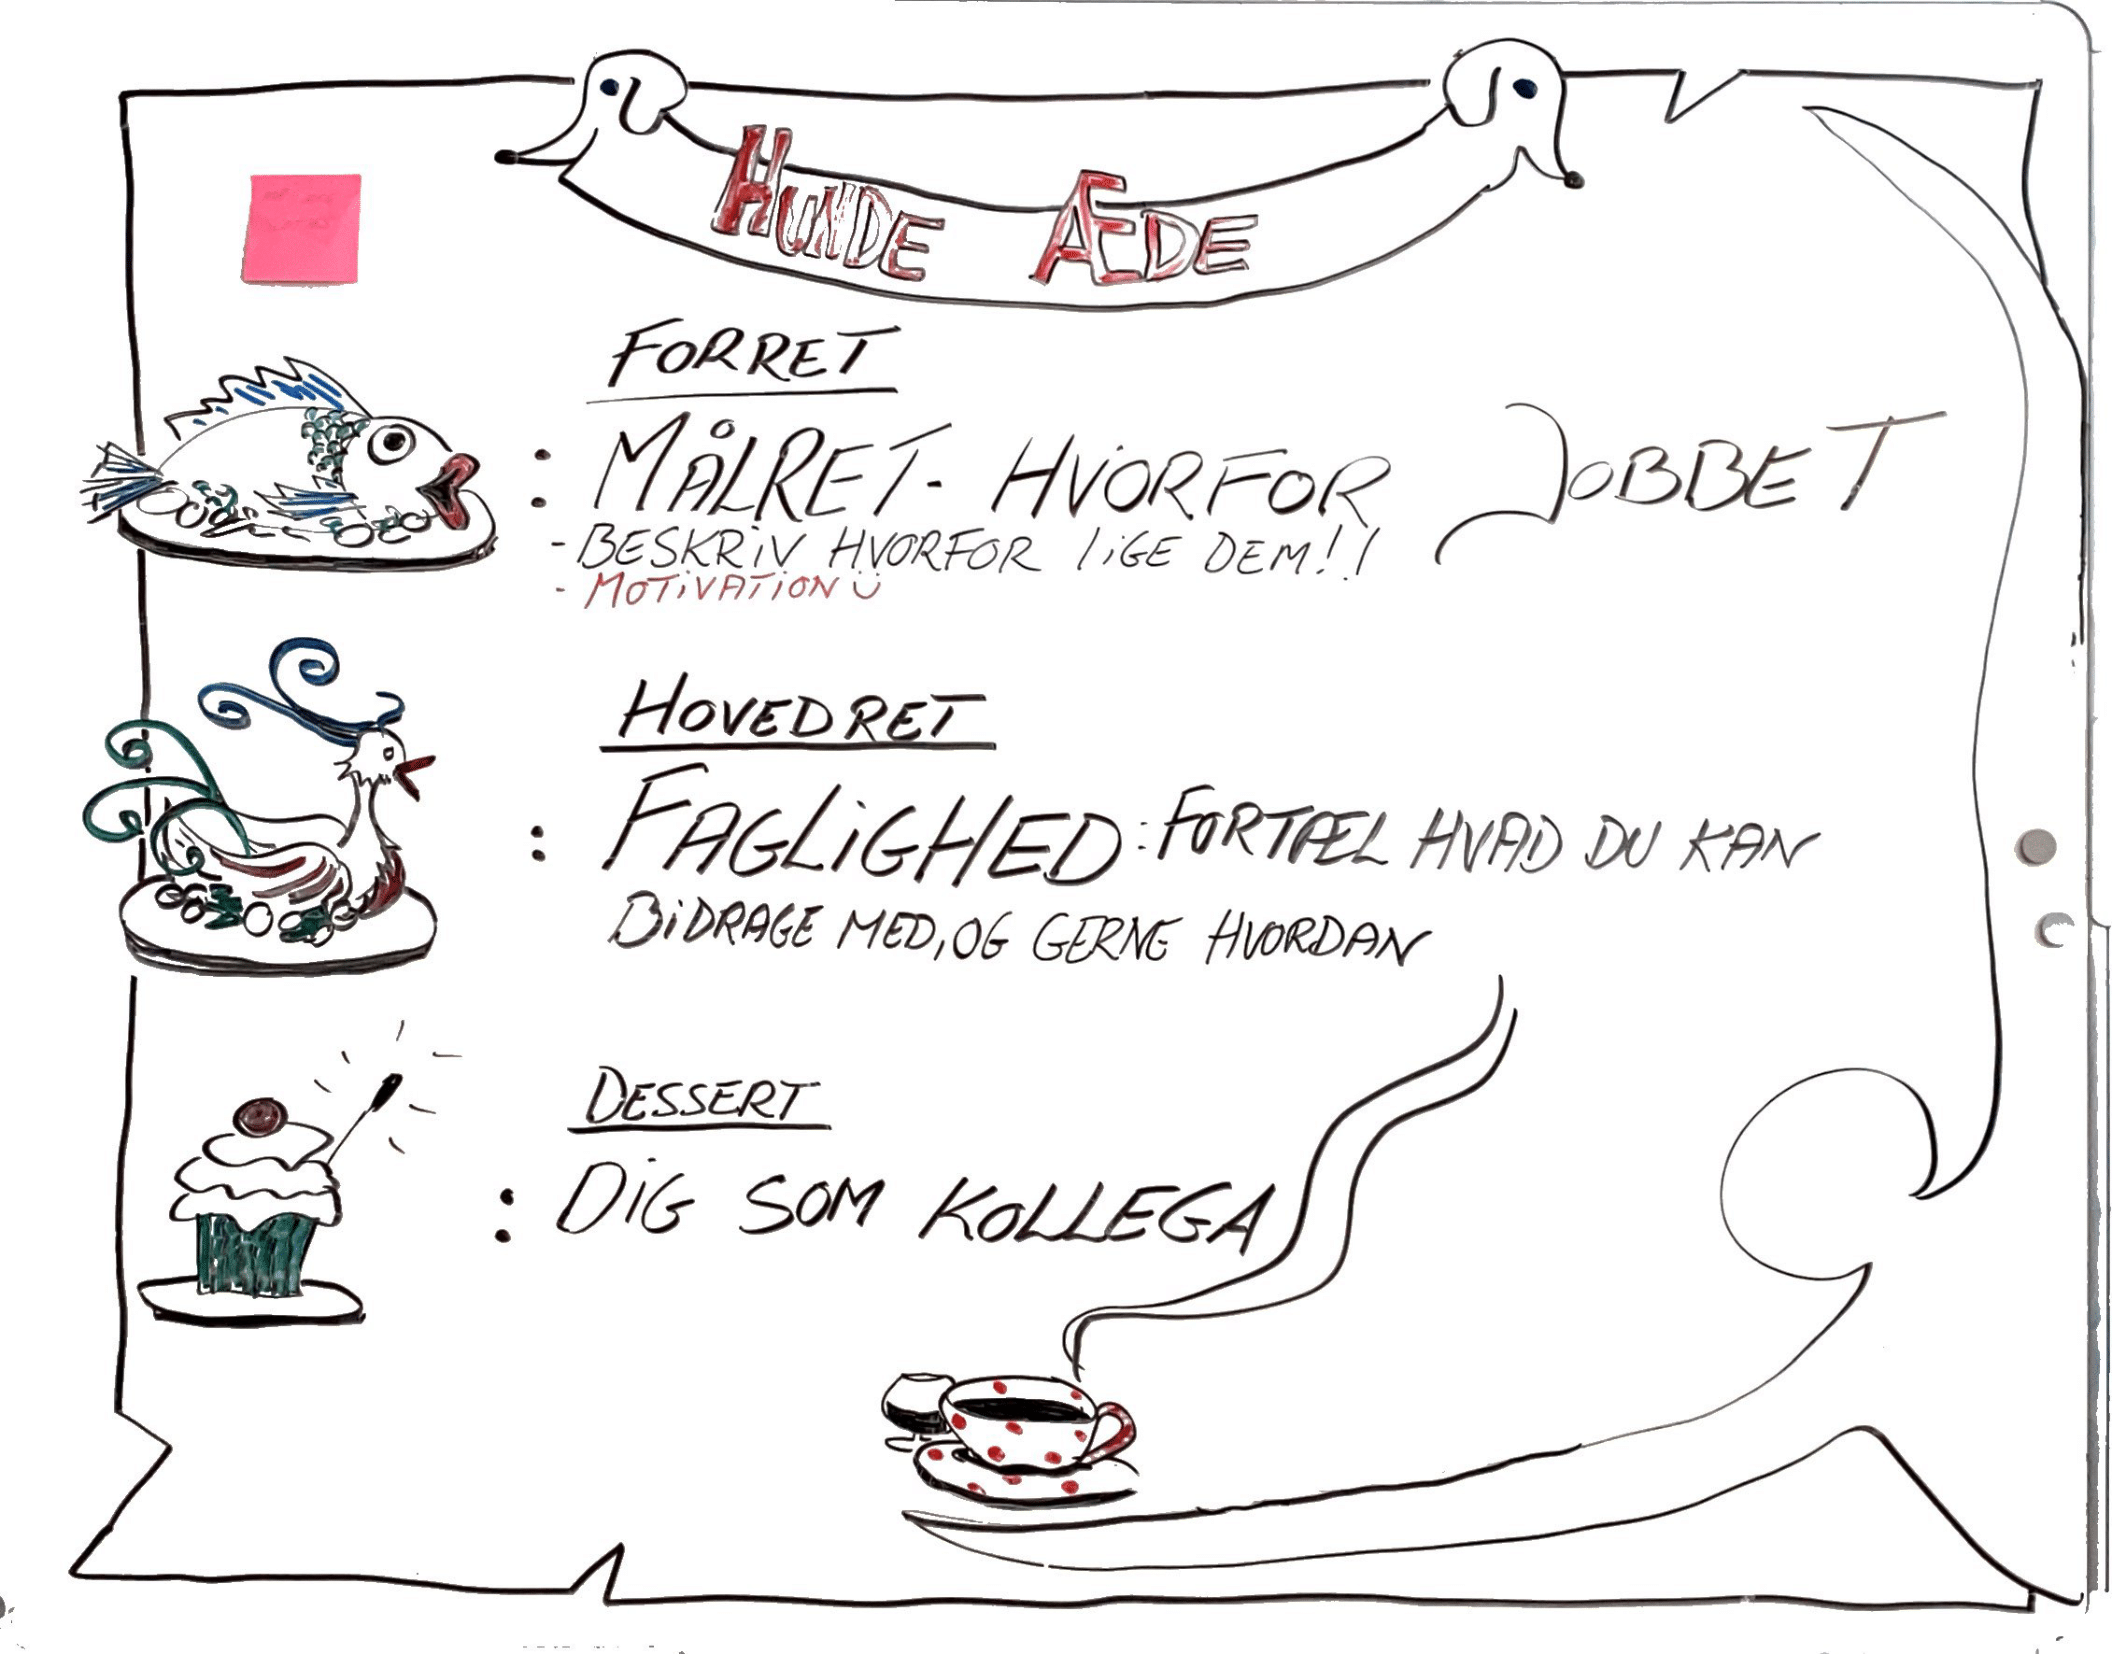 HUNDE ÆDE
FORRET
: MÅLRET - HVORFOR JOBBET
- BESKRIV HVORFOR LIGE DEM!!
- MOTIVATION Ü
HOVEDRET
: FAGLIGHED: FORTÆL HVAD DU KAN
BIDRAGE MED, OG GERNE HVORDAN
DESSERT
: DIG SOM KOLLEGA